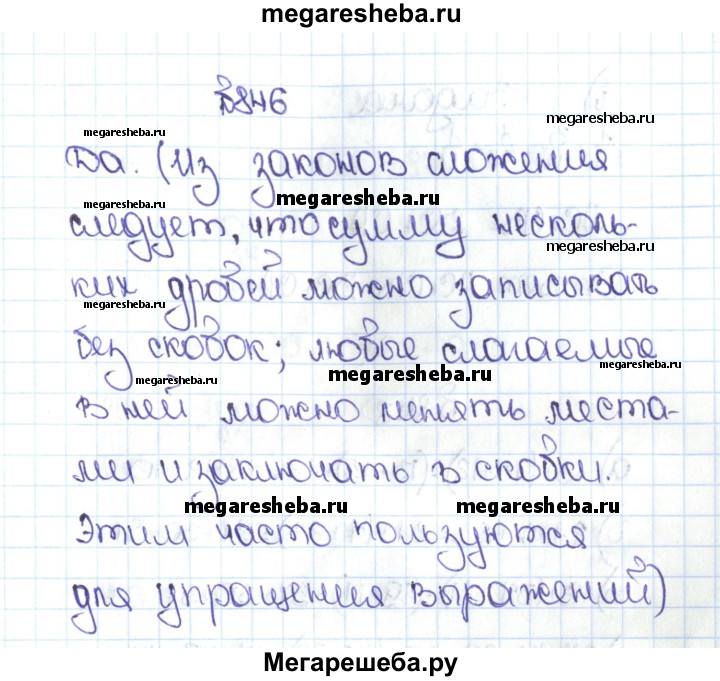 megaresheba.ru
№846
megaresheba.ru
megaresheba.ru
Да. (Из законов сложения
megaresheba.ru
megaresheba.ru
следует, что сумму несколь-
megaresheba.ru
ких дробей можно записывать
megaresheba.ru
без скобок; любые слагаемые
megaresheba.ru
megaresheba.ru
megaresheba.ru
в ней можно менять места-
ми и заключать в скобки.
megaresheba.ru
megaresheba.ru
Этим часто пользуются
для упращения выражений)
Мегарешеба.ру